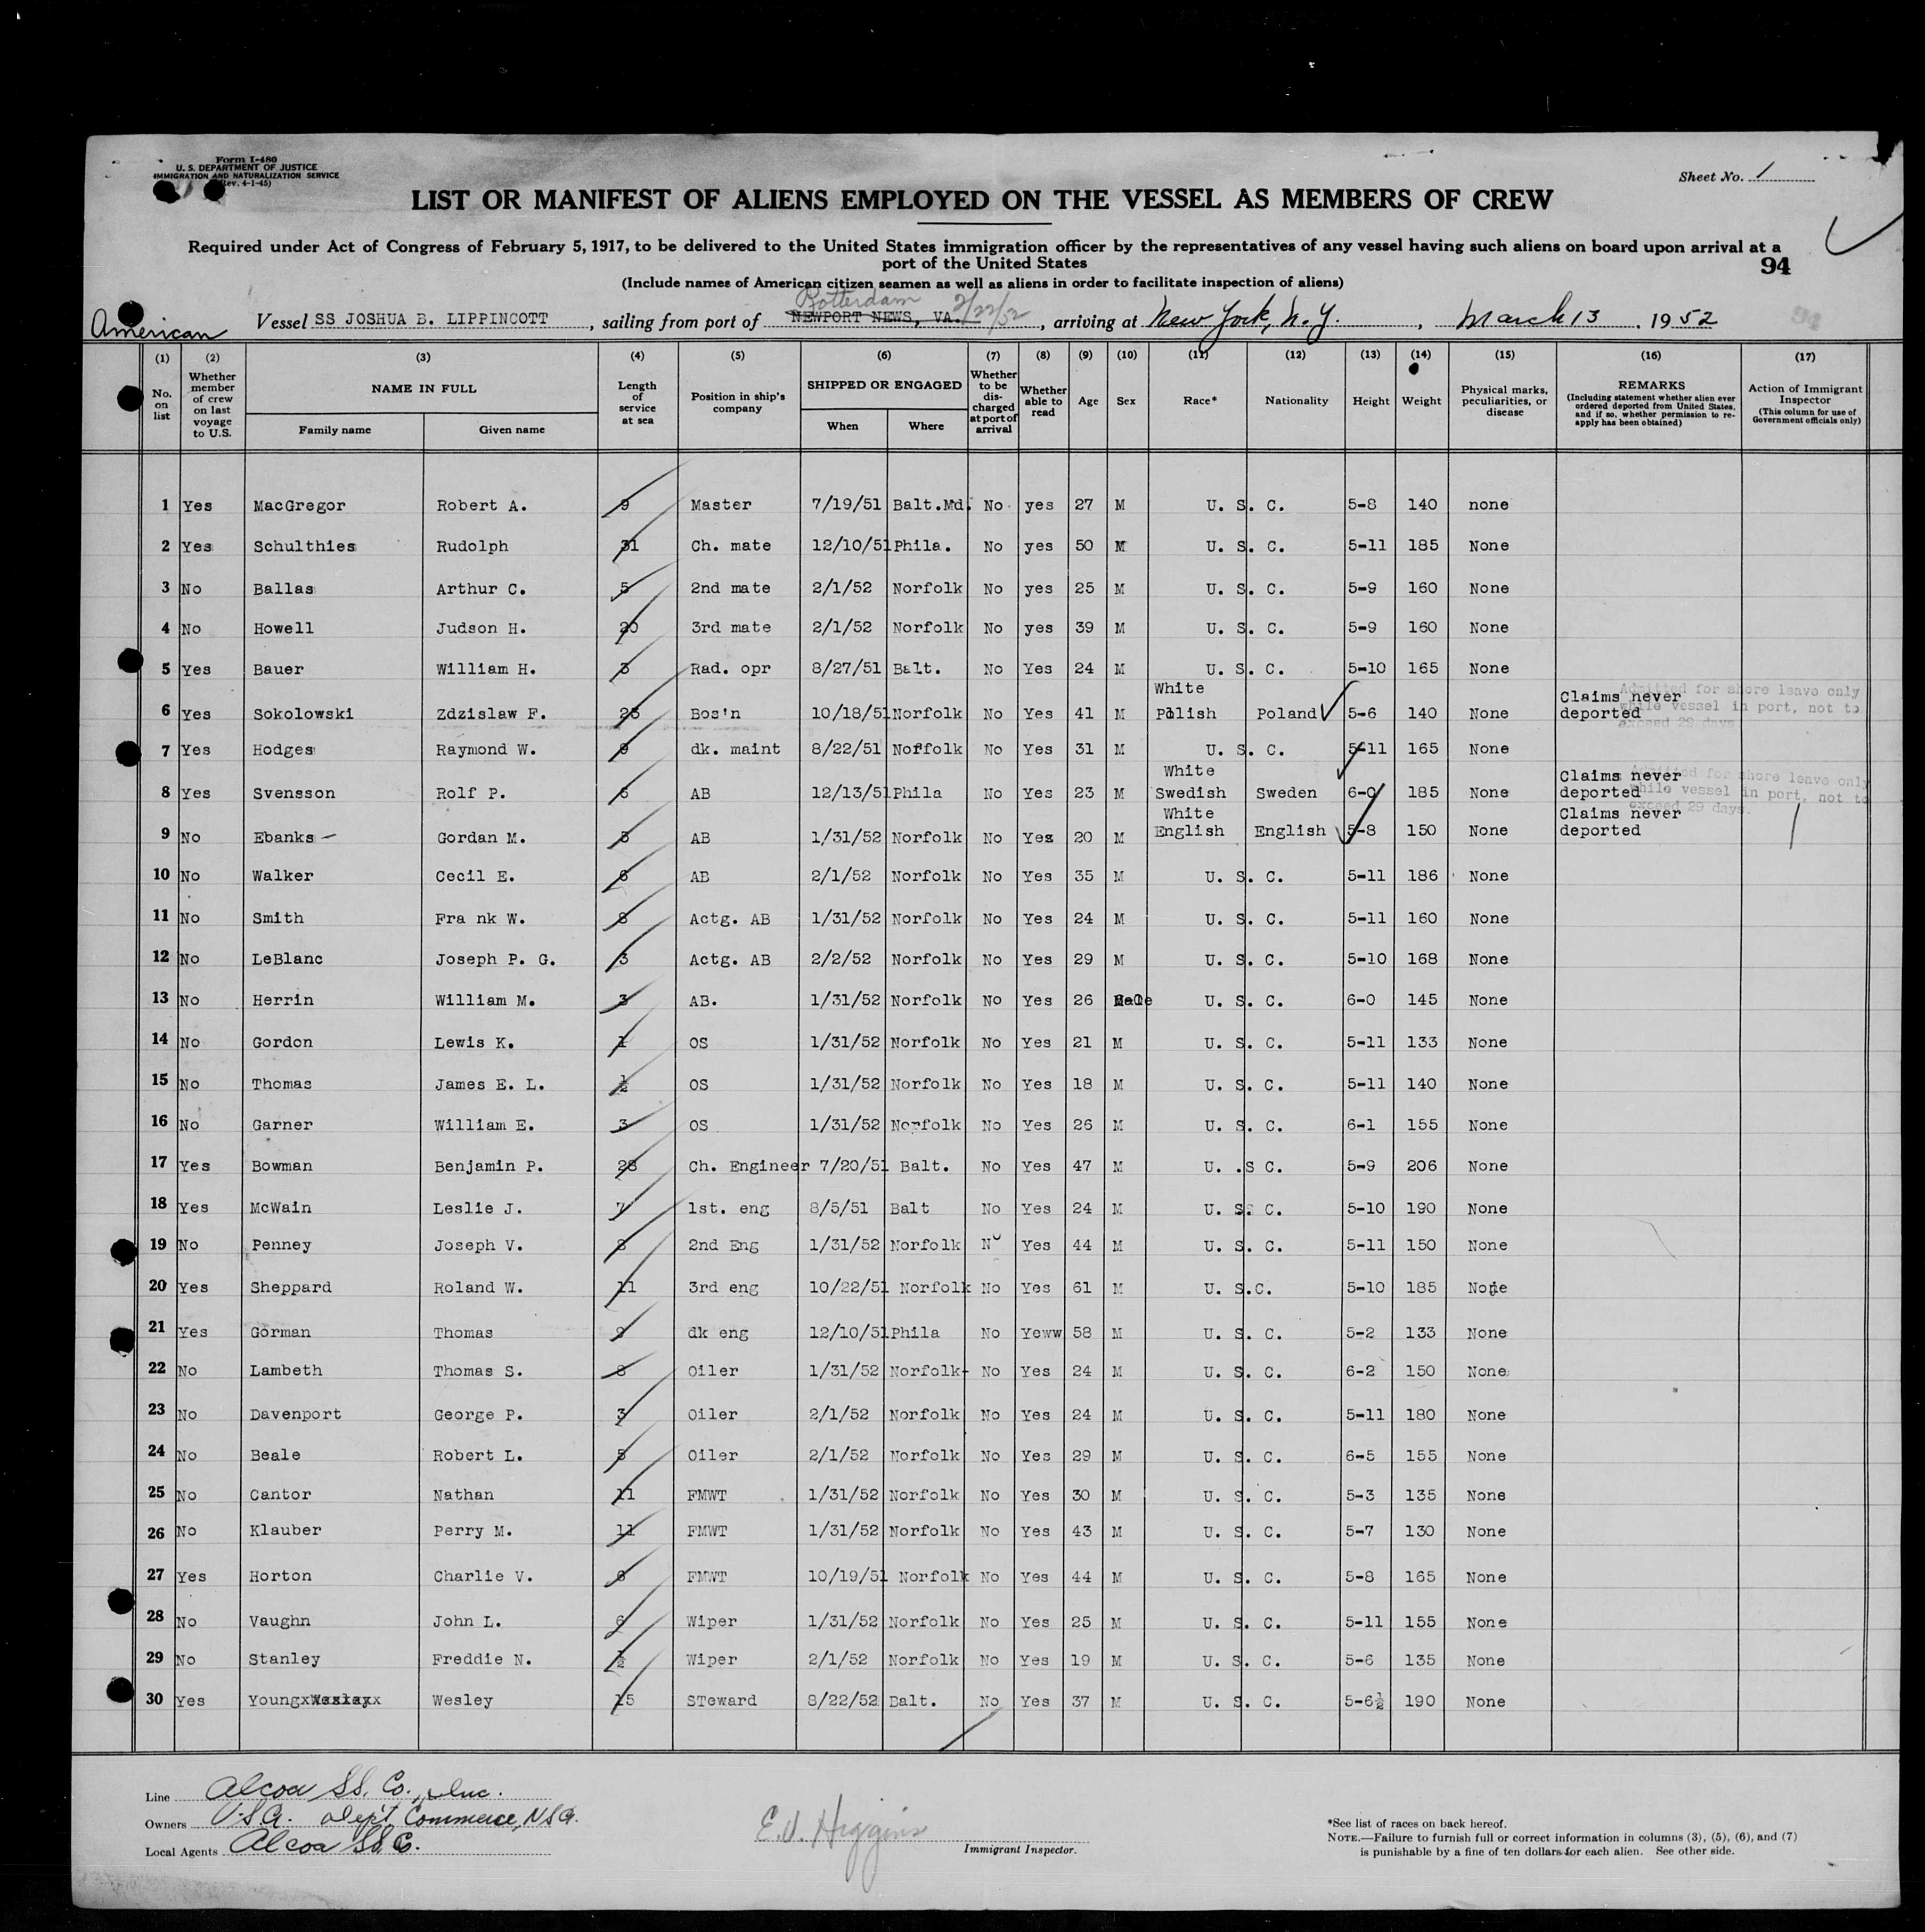 Form I-480
U. S. DEPARTMENT OF JUSTICE
IMMIGRATION AND NATURALIZATION SERVICE
(Rev. 4-1-45)
Sheet No. 1
LIST OR MANIFEST OF ALIENS EMPLOYED ON THE VESSEL AS MEMBERS OF CREW
Required under Act of Congress of February 5, 1917, to be delivered to the United States immigration officer by the representatives of any vessel having such aliens on board upon arrival at a
port of the United States
94
(Include names of American citizen seamen as well as aliens in order to facilitate inspection of aliens)
Rotterdam 2/22/52
American Vessel SS JOSHUA B. LIPPINCOTT, sailing from port of NEWPORT NEWS, VA., arriving at New York, N.Y., March 13, 1952 94
(1) (2) (3) (4) (5) (6) (7) (8) (9) (10) (11) (12) (13) (14) (15) (16) (17)
No. on list
Whether member of crew on last voyage to U.S.
NAME IN FULL
Family name Given name
Length of service at sea
Position in ship's company
SHIPPED OR ENGAGED
When Where
Whether to be discharged at port of arrival
Whether able to read
Age
Sex
Race*
Nationality
Height
Weight
Physical marks, peculiarities, or disease
REMARKS
(Including statement whether alien ever ordered deported from United States, and if so, whether permission to re-apply has been obtained)
Action of Immigrant Inspector
(This column for use of Government officials only)
1 Yes MacGregor Robert A. 9 Master 7/19/51 Balt.Md. No yes 27 M U. S. C. 5-8 140 none
2 Yes Schulthies Rudolph 31 Ch. mate 12/10/51 Phila. No yes 50 M U. S. C. 5-11 185 None
3 No Ballas Arthur C. 5 2nd mate 2/1/52 Norfolk No yes 25 M U. S. C. 5-9 160 None
4 No Howell Judson H. 20 3rd mate 2/1/52 Norfolk No yes 39 M U. S. C. 5-9 160 None
5 Yes Bauer William H. 3 Rad. opr 8/27/51 Balt. No Yes 24 M U. S. C. 5-10 165 None
6 Yes Sokolowski Zdzislaw F. Bos'n 10/18/51 Norfolk No Yes 41 M White Polish Poland 5-6 140 None Claims never deported Admitted for shore leave only while vessel in port, not to exceed 29 days
7 Yes Hodges Raymond W. 9 dk. maint 8/22/51 Noffolk No Yes 31 M U. S. C. 5-11 165 None
8 Yes Svensson Rolf P. 6 AB 12/13/51 Phila No Yes 23 M White Swedish Sweden 6-0 185 None Claims never deported Admitted for shore leave only while vessel in port, not to exceed 29 days.
9 No Ebanks Gordan M. AB 1/31/52 Norfolk No Yes 20 M White English English 5-8 150 None Claims never deported
10 No Walker Cecil E. 6 AB 2/1/52 Norfolk No Yes 35 M U. S. C. 5-11 186 None
11 No Smith Fra nk W. 8 Actg. AB 1/31/52 Norfolk No Yes 24 M U. S. C. 5-11 160 None
12 No LeBlanc Joseph P. G. 3 Actg. AB 2/2/52 Norfolk No Yes 29 M U. S. C. 5-10 168 None
13 No Herrin William M. 3 AB. 1/31/52 Norfolk No Yes 26 Male U. S. C. 6-0 145 None
14 No Gordon Lewis K. 1 OS 1/31/52 Norfolk No Yes 21 M U. S. C. 5-11 133 None
15 No Thomas James E. L. ½ OS 1/31/52 Norfolk No Yes 18 M U. S. C. 5-11 140 None
16 No Garner William E. 3 OS 1/31/52 Norfolk No Yes 26 M U. S. C. 6-1 155 None
17 Yes Bowman Benjamin P. 28 Ch. Engineer 7/20/51 Balt. No Yes 47 M U. .S C. 5-9 206 None
18 Yes McWain Leslie J. 7 1st. eng 8/5/51 Balt No Yes 24 M U. S. C. 5-10 190 None
19 No Penney Joseph V. 8 2nd Eng 1/31/52 Norfolk No Yes 44 M U. S. C. 5-11 150 None
20 Yes Sheppard Roland W. 11 3rd eng 10/22/51 Norfolk No Yes 61 M U. S.C. 5-10 185 None
21 Yes Gorman Thomas 9 dk eng 12/10/51 Phila No Yeww 58 M U. S. C. 5-2 133 None
22 No Lambeth Thomas S. 8 Oiler 1/31/52 Norfolk- No Yes 24 M U. S. C. 6-2 150 None
23 No Davenport George P. 3 Oiler 2/1/52 Norfolk No Yes 24 M U. S. C. 5-11 180 None
24 No Beale Robert L. 5 Oiler 2/1/52 Norfolk No Yes 29 M U. S. C. 6-5 155 None
25 No Cantor Nathan 11 FMWT 1/31/52 Norfolk No Yes 30 M U. S. C. 5-3 135 None
26 No Klauber Perry M. 11 FMWT 1/31/52 Norfolk No Yes 43 M U. S. C. 5-7 130 None
27 Yes Horton Charlie V. FMWT 10/19/51 Norfolk No Yes 44 M U. S. C. 5-8 165 None
28 No Vaughn John L. 6 Wiper 1/31/52 Norfolk No Yes 25 M U. S. C. 5-11 155 None
29 No Stanley Freddie N. ½ Wiper 2/1/52 Norfolk No Yes 19 M U. S. C. 5-6 135 None
30 Yes Young Wesley 15 STeward 8/22/52 Balt. No Yes 37 M U. S. C. 5-6½ 190 None
Line Alcoa SS. Co., Inc.
Owners U.S.A. Dep't Commerce, NSA.
Local Agents Alcoa SS Co.
E.J. Higgins
Immigrant Inspector.
*See list of races on back hereof.
NOTE.—Failure to furnish full or correct information in columns (3), (5), (6), and (7)
is punishable by a fine of ten dollars for each alien. See other side.